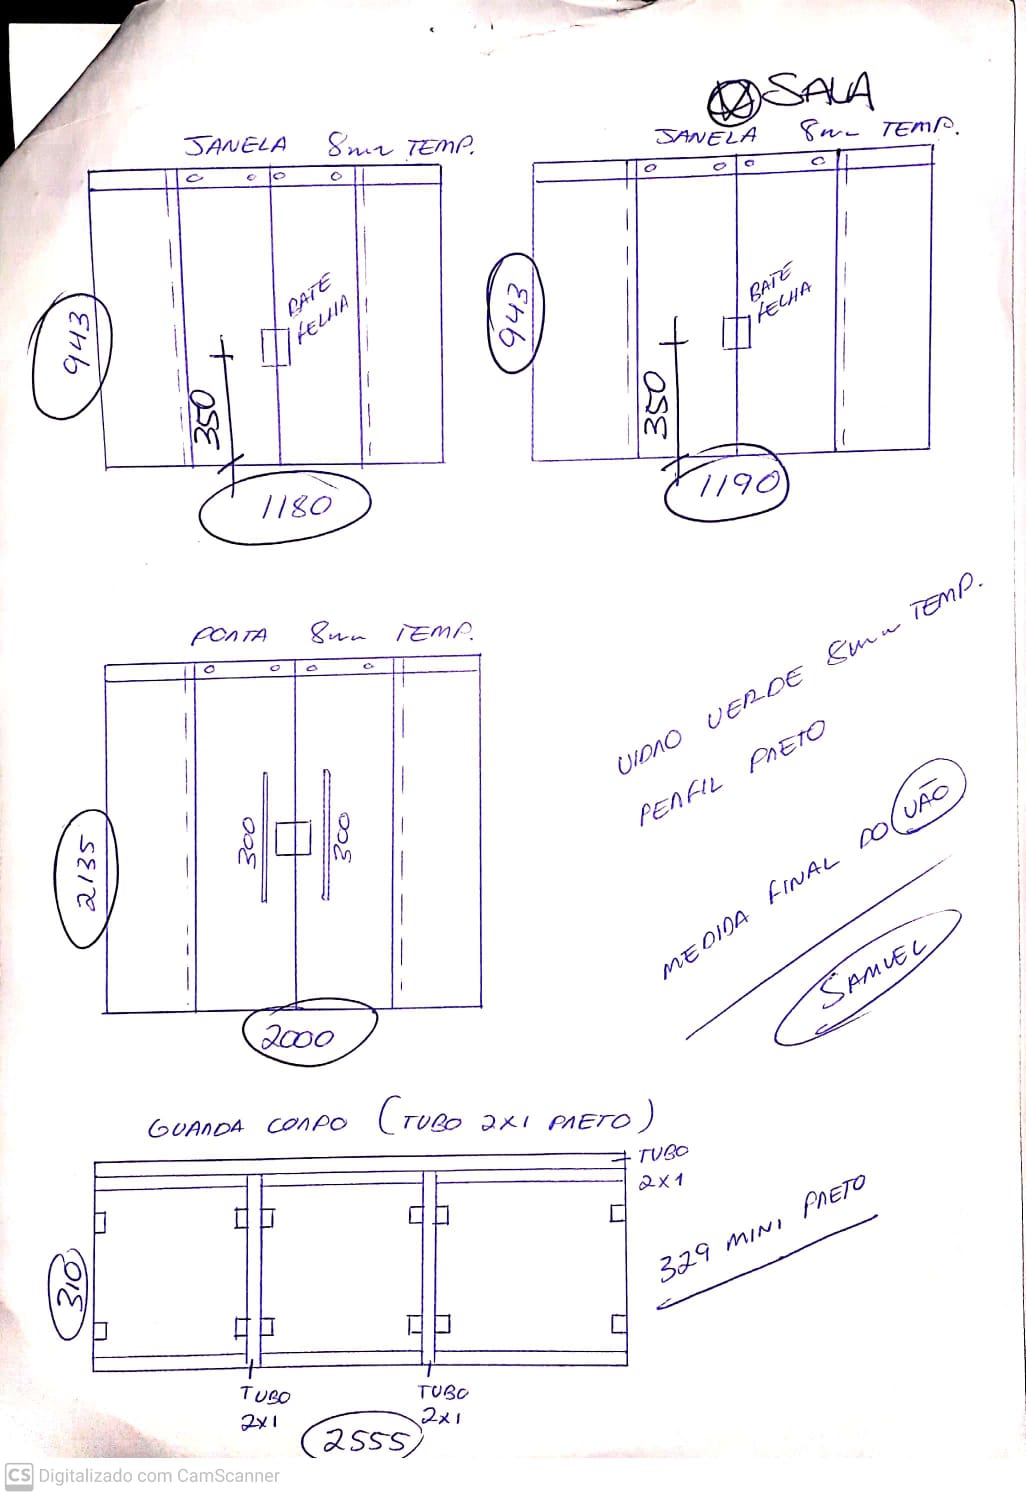 SALA
JANELA 8mm TEMP.
JANELA 8mm TEMP.
943
BATE
FELHA
350
1180
943
BATE
FELHA
350
1190
PORTA 8mm TEMP.
2135
300
300
2000
VIDRO VERDE 8mm TEMP.
PERFIL PRETO
MEDIDA FINAL DO VÃO
SAMUEL
GUARDA CORPO (TUBO 2X1 PRETO)
TUBO
2x1
310
329 MINI PRETO
TUBO
2x1
TUBO
2x1
2555
CS Digitalizado com CamScanner